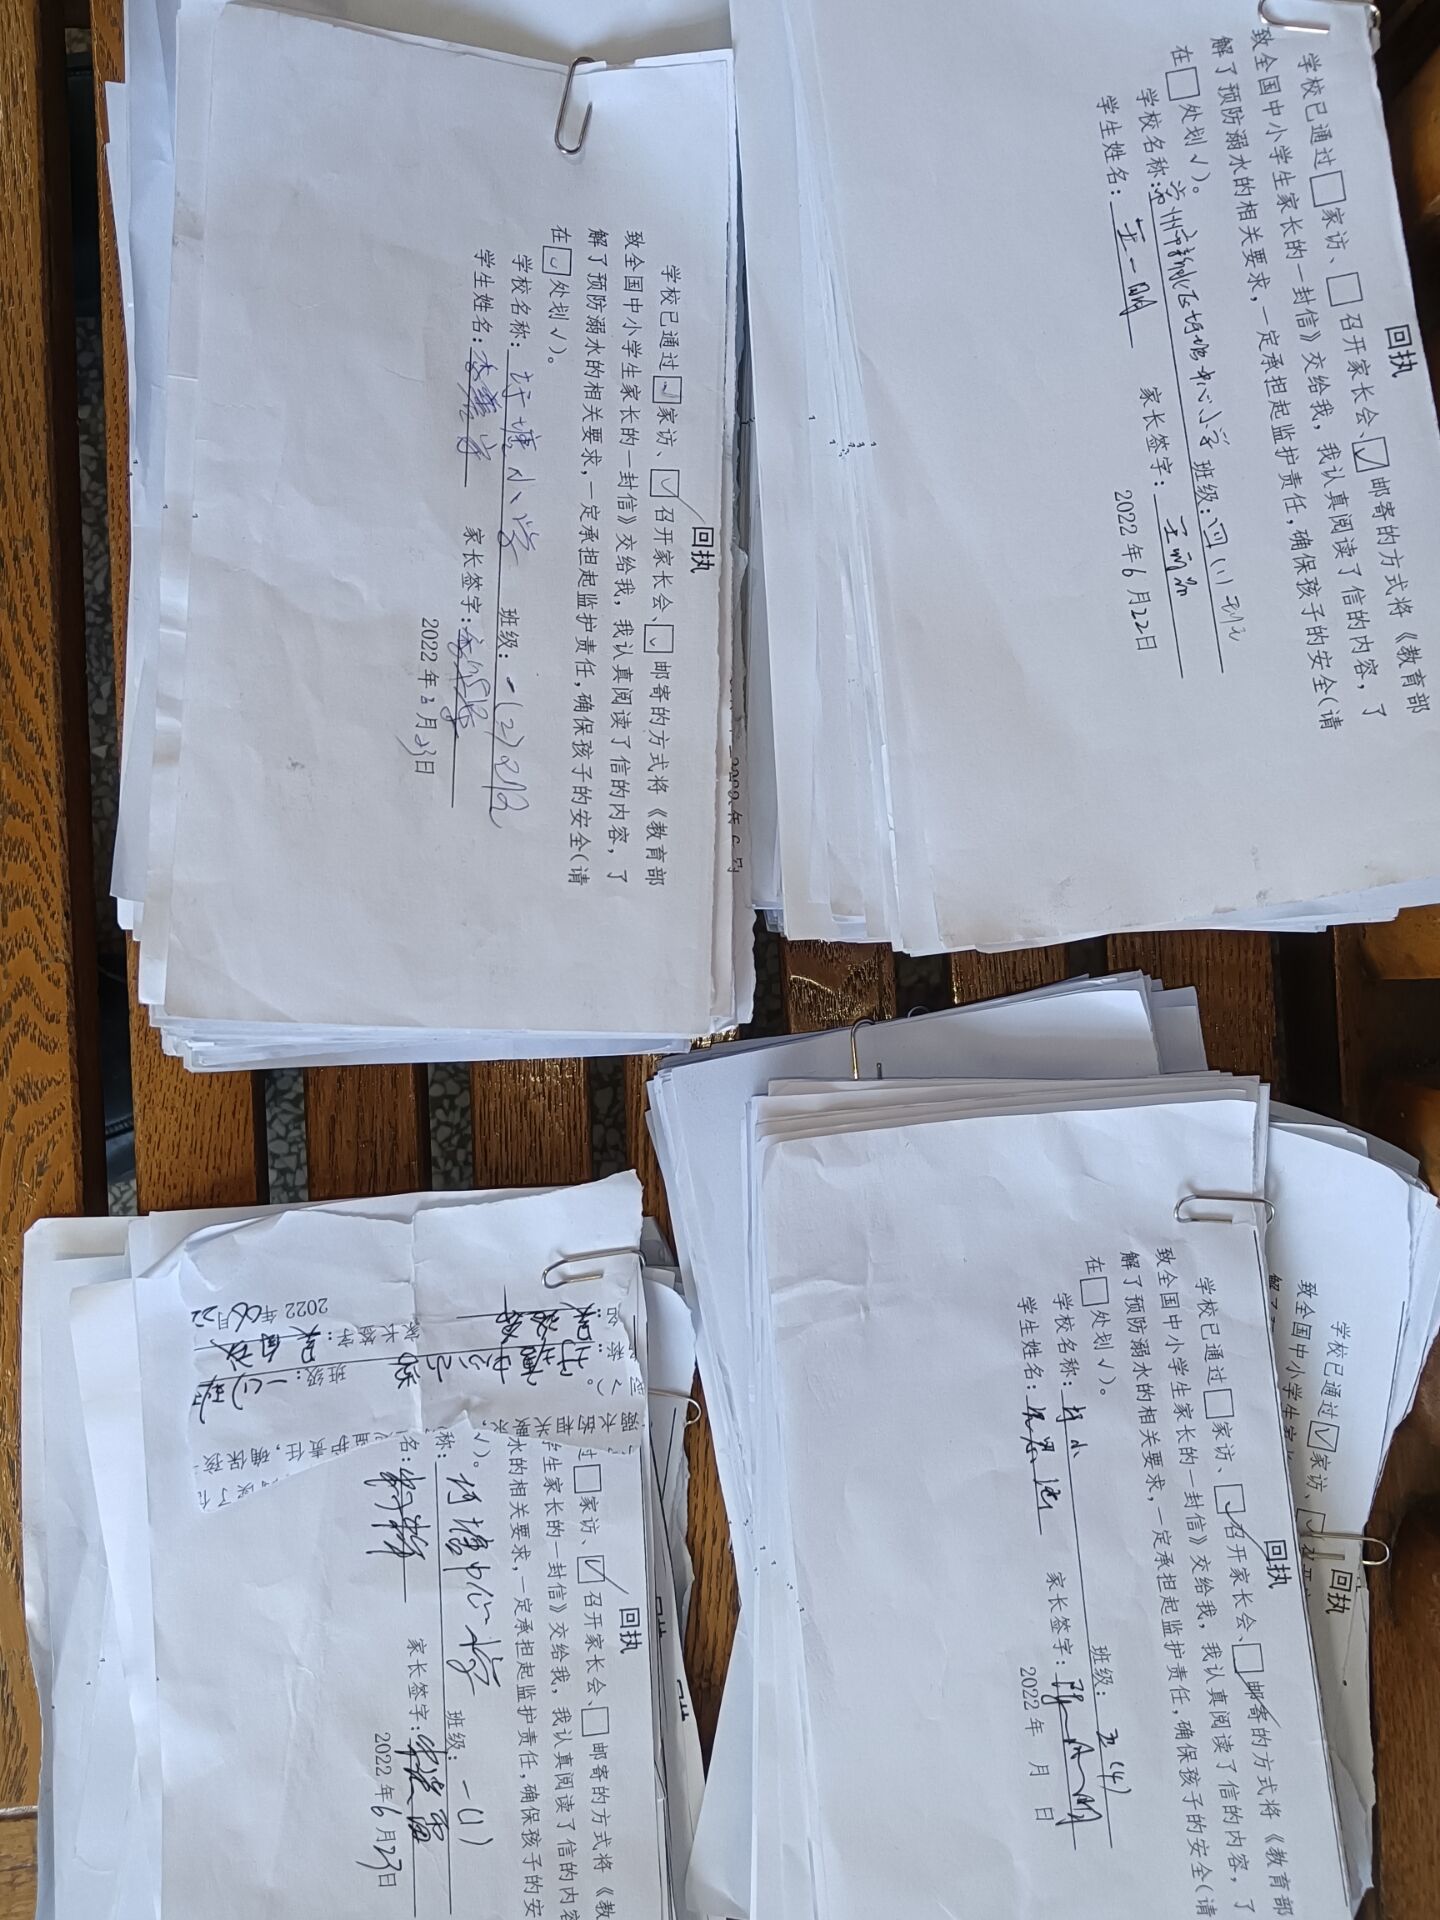 回执
学校已通过□家访、□召开家长会、☑邮寄的方式将《教育部
致全国中小学生家长的一封信》交给我，我认真阅读了信的内容，了
解了预防溺水的相关要求，一定承担起监护责任，确保孩子的安全（请
在□处划√）。
学校名称：常州市新北区圩塘中心小学 班级：四(1)班
学生姓名：王一 家长签字：王
2022年6月22日
回执
学校已通过☑家访、☑召开家长会、☑邮寄的方式将《教育部
致全国中小学生家长的一封信》交给我，我认真阅读了信的内容，了
解了预防溺水的相关要求，一定承担起监护责任，确保孩子的安全（请
在☑处划√）。
学校名称：圩塘小学 班级：一(2)班
学生姓名：李 家长签字：
2022年 月23日
学校已通过☑家访、
致全国中小学生家
回执
回执
学校已通过□家访、☑召开家长会、□邮寄的方式将《教育部
致全国中小学生家长的一封信》交给我，我认真阅读了信的内容，了
解了预防溺水的相关要求，一定承担起监护责任，确保孩子的安全（请
在□处划√）。
学校名称：圩小 班级：五(4)
学生姓名： 家长签字：
2022年 月 日
回执
过□家访、☑召开家长会、□邮寄的方式将《教
学生家长的一封信》交给我，我认真阅读了信的内容
水的相关要求，一定承担起监护责任，确保孩子的安
√）。
称：圩塘中心小学 班级：一(1)
名： 家长签字：
2022年6月23日
班级：一(1)班
家长签字：吴
2022年06月22